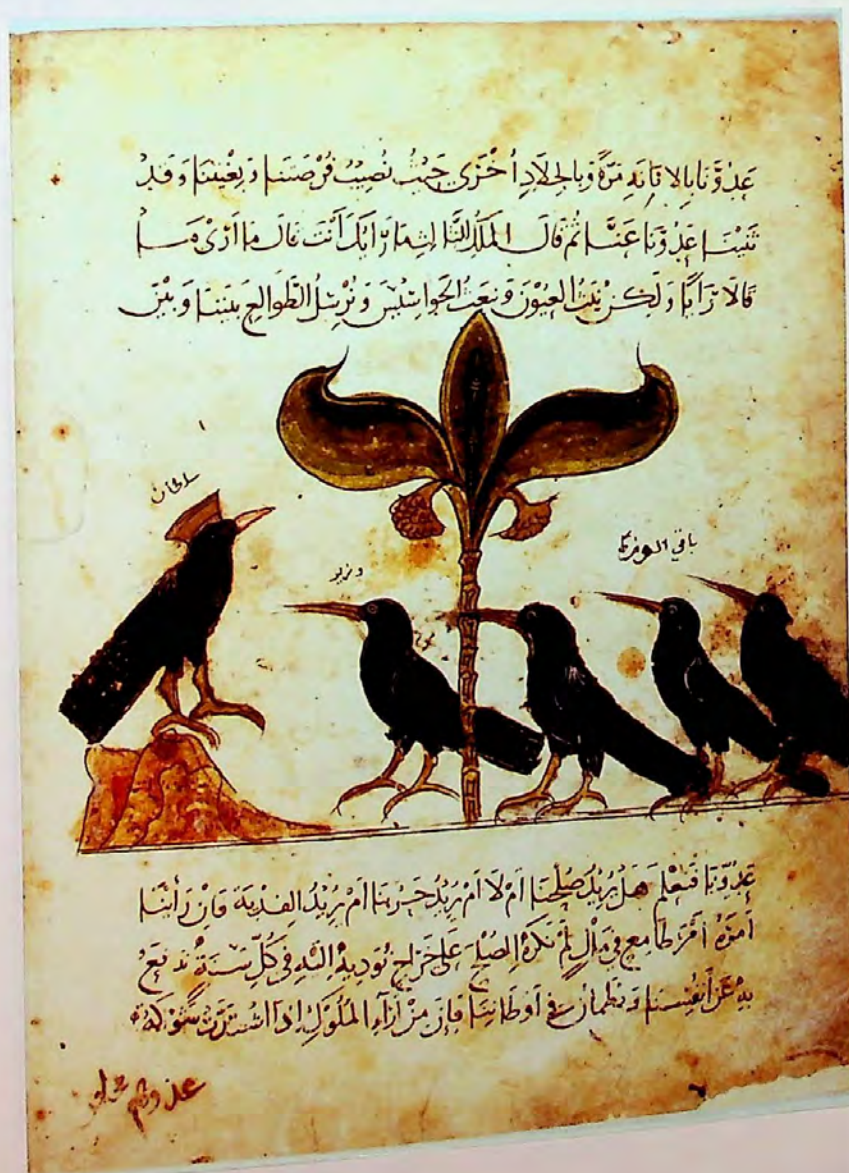 عَدُوَّنَا بِالاَنَاةِ مَرَّةً وَبِالجِلَادِ اُخْرَى حَيْثُ نُصِيْبُ فُرْصَتَنَا وَبِغْيَتَنَا وَقَدْ
ثَنَيْنَا عَدُوَّنَا عَنَّا ثُمَّ قَالَ المَلِكُ للثَّالِثِ مَا رَايُكَ اَنْتَ قَالَ مَا اَرَى مَا
قَالَا رَايًا وَلَكِنْ نَبُثُّ العُيُوْنَ وَنَبْعَثُ الجَوَاسِيْسَ وَنُرْسِلُ الطَّوَالِعَ بَيْنَنَا وَبَيْنَ
سلطان
وزير
باقي الوزرا
عَدُوِّنَا فَنَعْلَمَ هَلْ يُرِيْدُ صُلْحَنَا اَمْ لَا اَمْ يُرِيْدُ حَرْبَنَا اَمْ يُرِيْدُ الفِدْيَةَ فَاِنْ رَاَيْنَا
اَمْرَهُ اَمْرَ طَامِعٍ فِي مَالٍ لَمْ نَكْرَهِ الصُّلْحَ عَلَى خَرَاجٍ نُوَدِّيْهِ اِلَيْهِ فِي كُلِّ سَنَةٍ نَدْفَعُ
بِهِ عَنْ اَنْفُسِنَا وَنَطْمَانُّ فِي اَوْطَانِنَا فَاِنَّ مِنْ اَرَاءِ المُلُوْكِ اِذَا اشْتَدَّتْ شَوْكَةُ
عدوهم